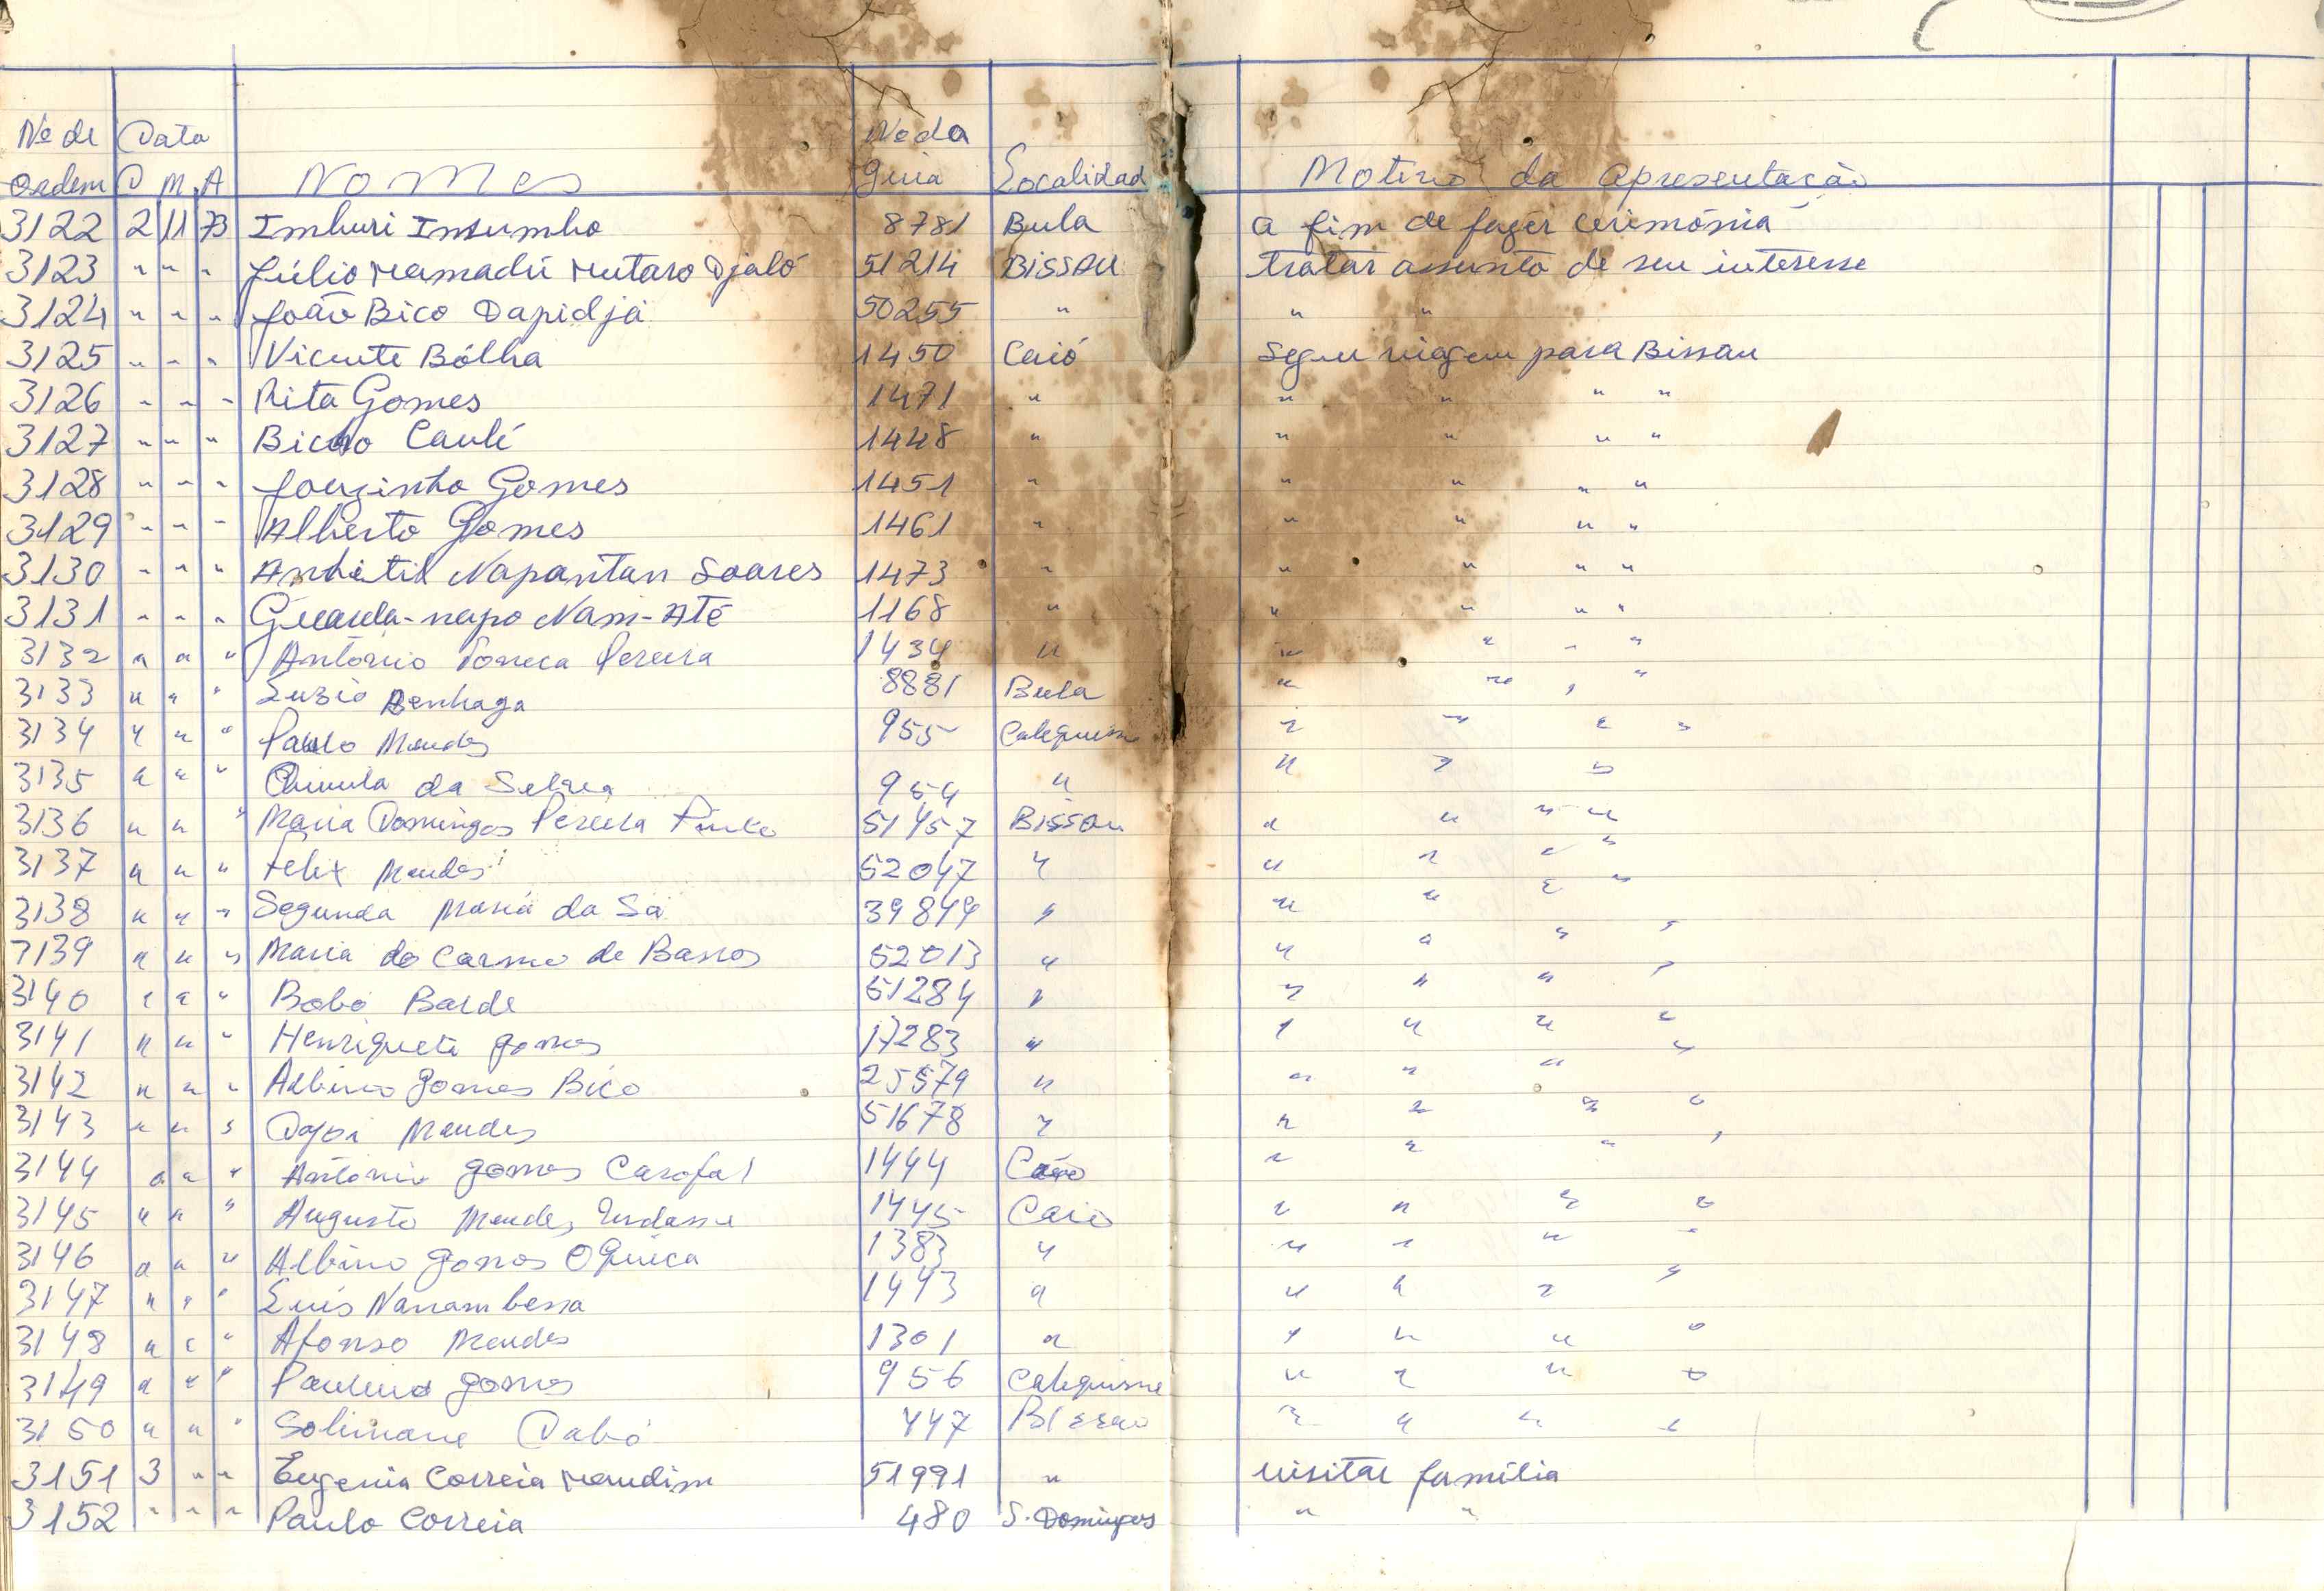 Nº de Data Nº da
Ordem D M A Nomes Guia Localidad Motivo da Apresentação
3122 2 11 73 Imburi Insumbo 8781 Bula a fim de fazer cerimónia
3123 " " " Júlio Mamadú Mutaro Djaló 51214 Bissau tratar assunto de seu interesse
3124 " " " João Bico Dapidjá 50255 " " "
3125 " " " Vicente Bólha 1450 Caió Segue viagem para Bissau
3126 " " " Rita Gomes 1471 " " " " "
3127 " " " Bicho Caulé 1448 " " " " "
3128 " " " Jorginho Gomes 1451 " " " " "
3129 " " " Alberto Gomes 1461 " " " " "
3130 " " " Napantan Soares 1473 " " " " "
3131 " " " Nam-Até 1168 " " " " "
3132 " " " António Pereira 1434 " " " " "
3133 " " " Luzia 8881 Bula " " " "
3134 " " " Paulo Mendes 955 " " " "
3135 " " " da 954 " " " "
3136 " " " Maria Domingas Pereira Pinto 51457 Bissau " " " "
3137 " " " Felix Mendes 52047 " " " " "
3138 " " " Segunda Maria da Sá 39849 " " " " "
3139 " " " Maria do Carmo de Barros 52013 " " " " "
3140 " " " Bobó Balde 51284 " " " " "
3141 " " " Henriqueta Gomes 17283 " " " " "
3142 " " " Albino Gomes Bico 25579 " " " "
3143 " " " Mendes 51678 " " " " "
3144 " " " António Gomes Carofal 1444 Caió " " " "
3145 " " " Augusto Mendes 1445 Caió " " " "
3146 " " " Albino Gomes 1383 " " " " "
3147 " " " Luís Nanambessa 1443 " " " " "
3148 " " " Afonso Mendes 1301 " " " " "
3149 " " " Paulino Gomes 956 Calequisse " " " "
3150 " " " Solimane Dabó 447 Bissau " " " "
3151 3 " " Eugenia Correia Mandim 51991 " visitar família
3152 " " " Paulo Correia 480 S. Domingos " "